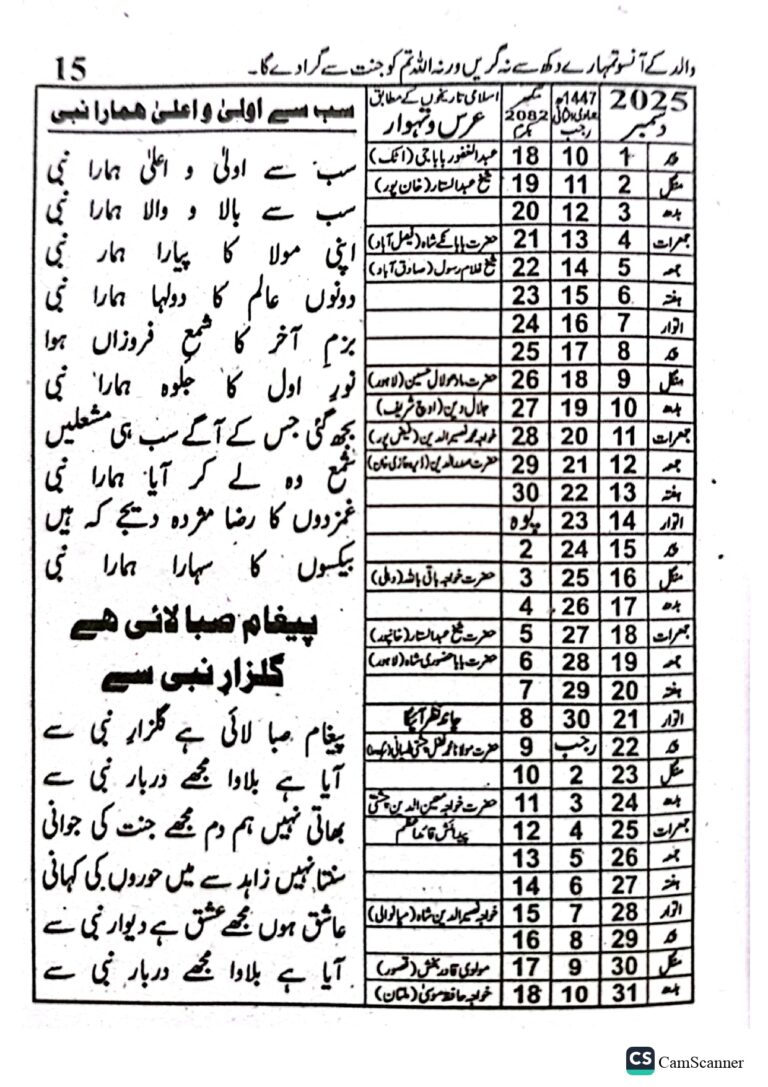 15
والد کے آنسو تمہارے دکھ سے نہ گریں ورنہ اللہ تم کو جنت سے گرا دے گا۔
سب سے اولیٰ و اعلیٰ ہمارا نبی
سب سے اولیٰ و اعلیٰ ہمارا نبی
سب سے بالا و والا ہمارا نبی
اپنی مولا کا پیارا ہمار نبی
دونوں عالم کا دولہا ہمارا نبی
بزمِ آخر کا شمعِ فروزاں ہوا
نورِ اول کا جلوہ ہمارا نبی
بجھ گئی جس کے آگے سب ہی مشعلیں
شمع وہ لے کر آیا ہمارا نبی
غمزدوں کا رضا مژدہ دیجے کہ ہیں
بیکسوں کا سہارا ہمارا نبی
پیغام صبا لائی ہے
گلزارِ نبی سے
پیغام صبا لائی ہے گلزارِ نبی سے
آیا ہے بلاوا مجھے دربار نبی سے
بھاتی نہیں ہم دم مجھے جنت کی جوانی
سنتا نہیں زاہد سے میں حوروں کی کہانی
عاشق ہوں مجھے عشق ہے دیوار نبی سے
آیا ہے بلاوا مجھے دربار نبی سے
2025 دسمبر 1447ھ رجب 2082 اسلامی تاریخوں کے مطابق عرس و تہوار
1 10 18 عبدالغفور باباجی (اٹک)
منگل 2 11 19 شیخ عبدالستار (خان پور)
بدھ 3 12 20
جمعرات 4 13 21
جمعہ 5 14 22 شیخ غلام رسول (صادق آباد)
ہفتہ 6 15 23
اتوار 7 16 24
8 17 25
منگل 9 18 26 حضرت مادھولال حسین (لاہور)
بدھ 10 19 27 جلال دین (اوچ شریف)
جمعرات 11 20 28 خواجہ محمد نصیرالدین (فیض پور)
جمعہ 12 21 29 حضرت صدرالدین (ڈیرہ غازی خان)
ہفتہ 13 22 30
اتوار 14 23 پوہ
15 24 2
منگل 16 25 3 حضرت خواجہ باقی باللہ (دہلی)
بدھ 17 26 4
جمعرات 18 27 5 حضرت شیخ عبدالستار (خانپور)
جمعہ 19 28 6 حضرت بابا حضوری شاہ (لاہور)
ہفتہ 20 29 7
اتوار 21 30 8 چاند نظر آئیگا
22 رجب 9
منگل 23 2 10
بدھ 24 3 11 حضرت خواجہ معین الدین چشتی
جمعرات 25 4 12 پیدائش قائداعظم
جمعہ 26 5 13
ہفتہ 27 6 14
اتوار 28 7 15 خواجہ نصیرالدین شاہ (میانوالی)
29 8 16
منگل 30 9 17 مولوی قادر بخش (قصور)
بدھ 31 10 18 خواجہ حافظ موسیٰ (ملتان)
CS CamScanner